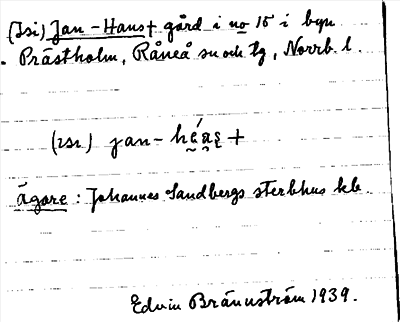 (Isi) Jan-Hans+ gård i no 15 i byn
Prästholm, Råneå sn och tg, Norrb. l.
(ısı) jan-hẹ́a̯s̨ +
ägare : Johannes Sandbergs sterbhus kb.
Edvin Brännström 1939.